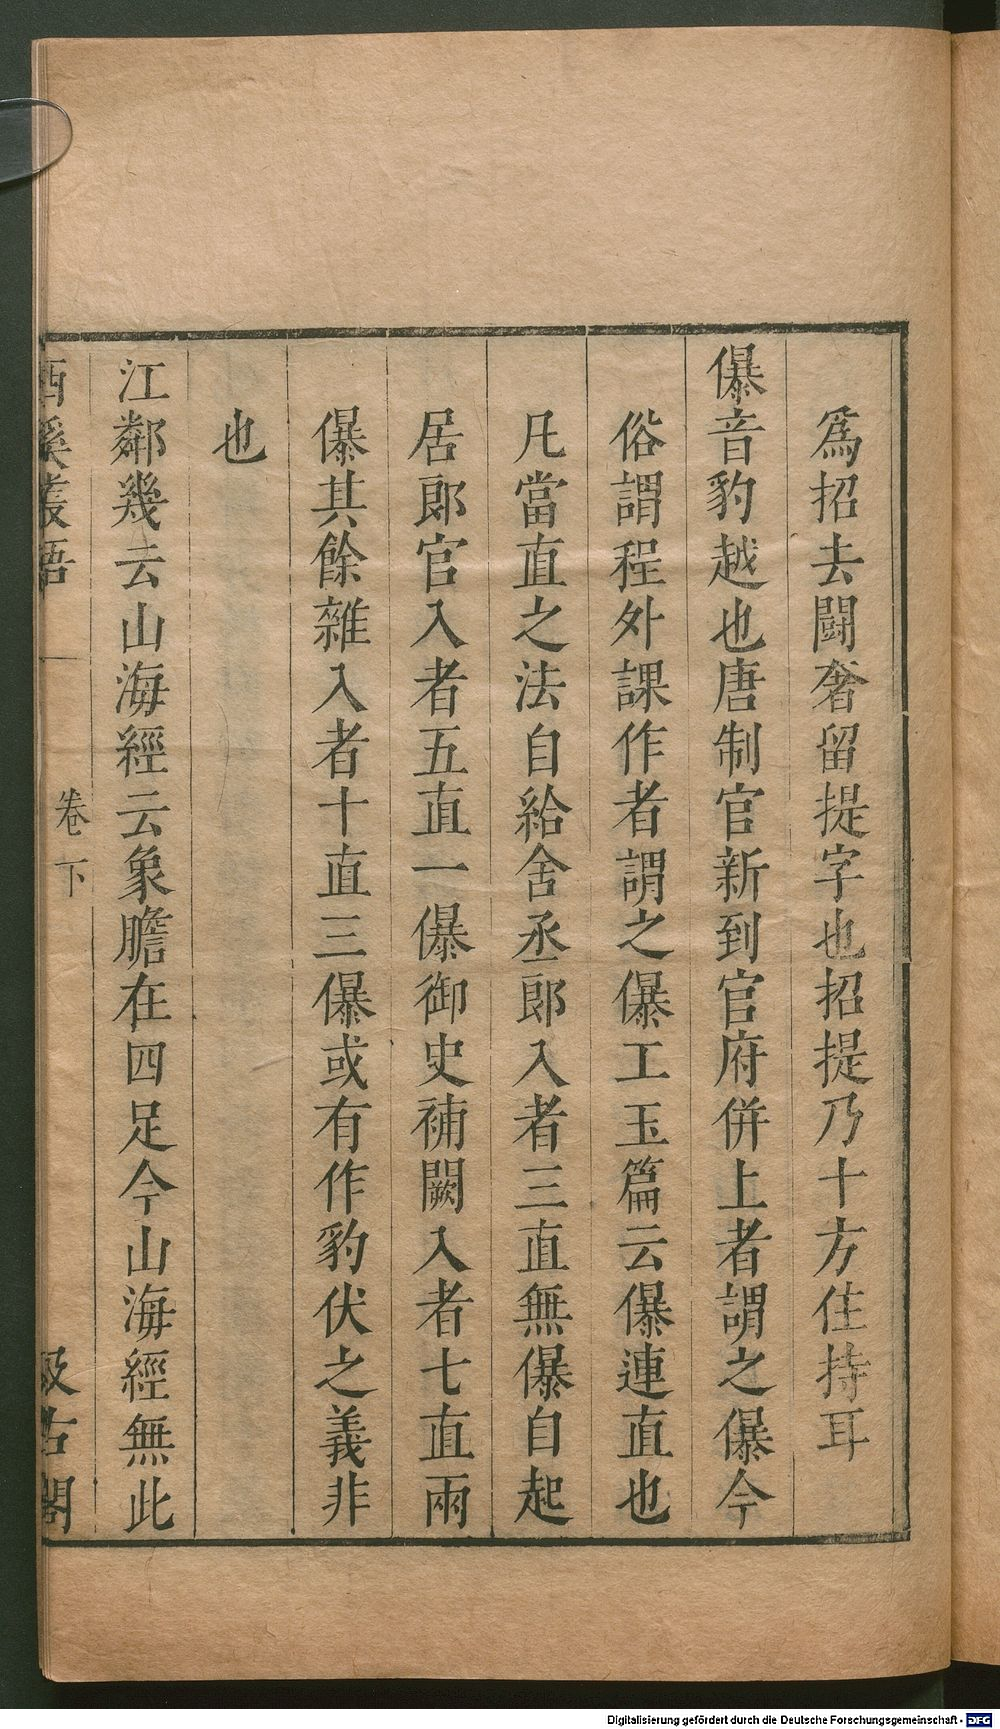 爲招去闘奢留提字也招提乃十方住持耳
儤音豹越也唐制官新到官府併上者謂之儤今
俗謂程外課作者謂之儤工玉篇云儤連直也
凡當直之法自給舍丞郎入者三直無儤自起
居郎官入者五直一儤御史補闕入者七直兩
儤其餘雜入者十直三儤或有作豹伏之義非
也
江鄰幾云山海經云象膽在四足今山海經無此
西溪叢語
卷下
汲古閣
Digitalisierung gefördert durch die Deutsche Forschungsgemeinschaft - DFG